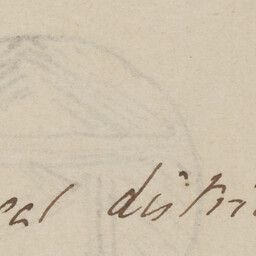 eal distri